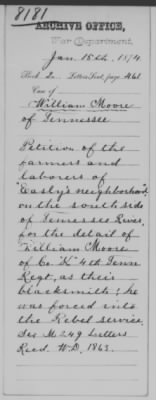 8181
ARCHIVE OFFICE,
War Department,
Jan. 15th, 1874
Book 2. Letters Sent, page 461
Case of
William Moore
of Tennessee
Petition of the
farmers and
laborers of
"Easly's neighborhood,"
on the south side
of Tennessee River,
for the detail of
William Moore
of Co. "K" 4th Tenn
Regt, as their
blacksmith; he
was forced into
the Rebel service.
See M 249 Letters
Recd. W.D. 1863.